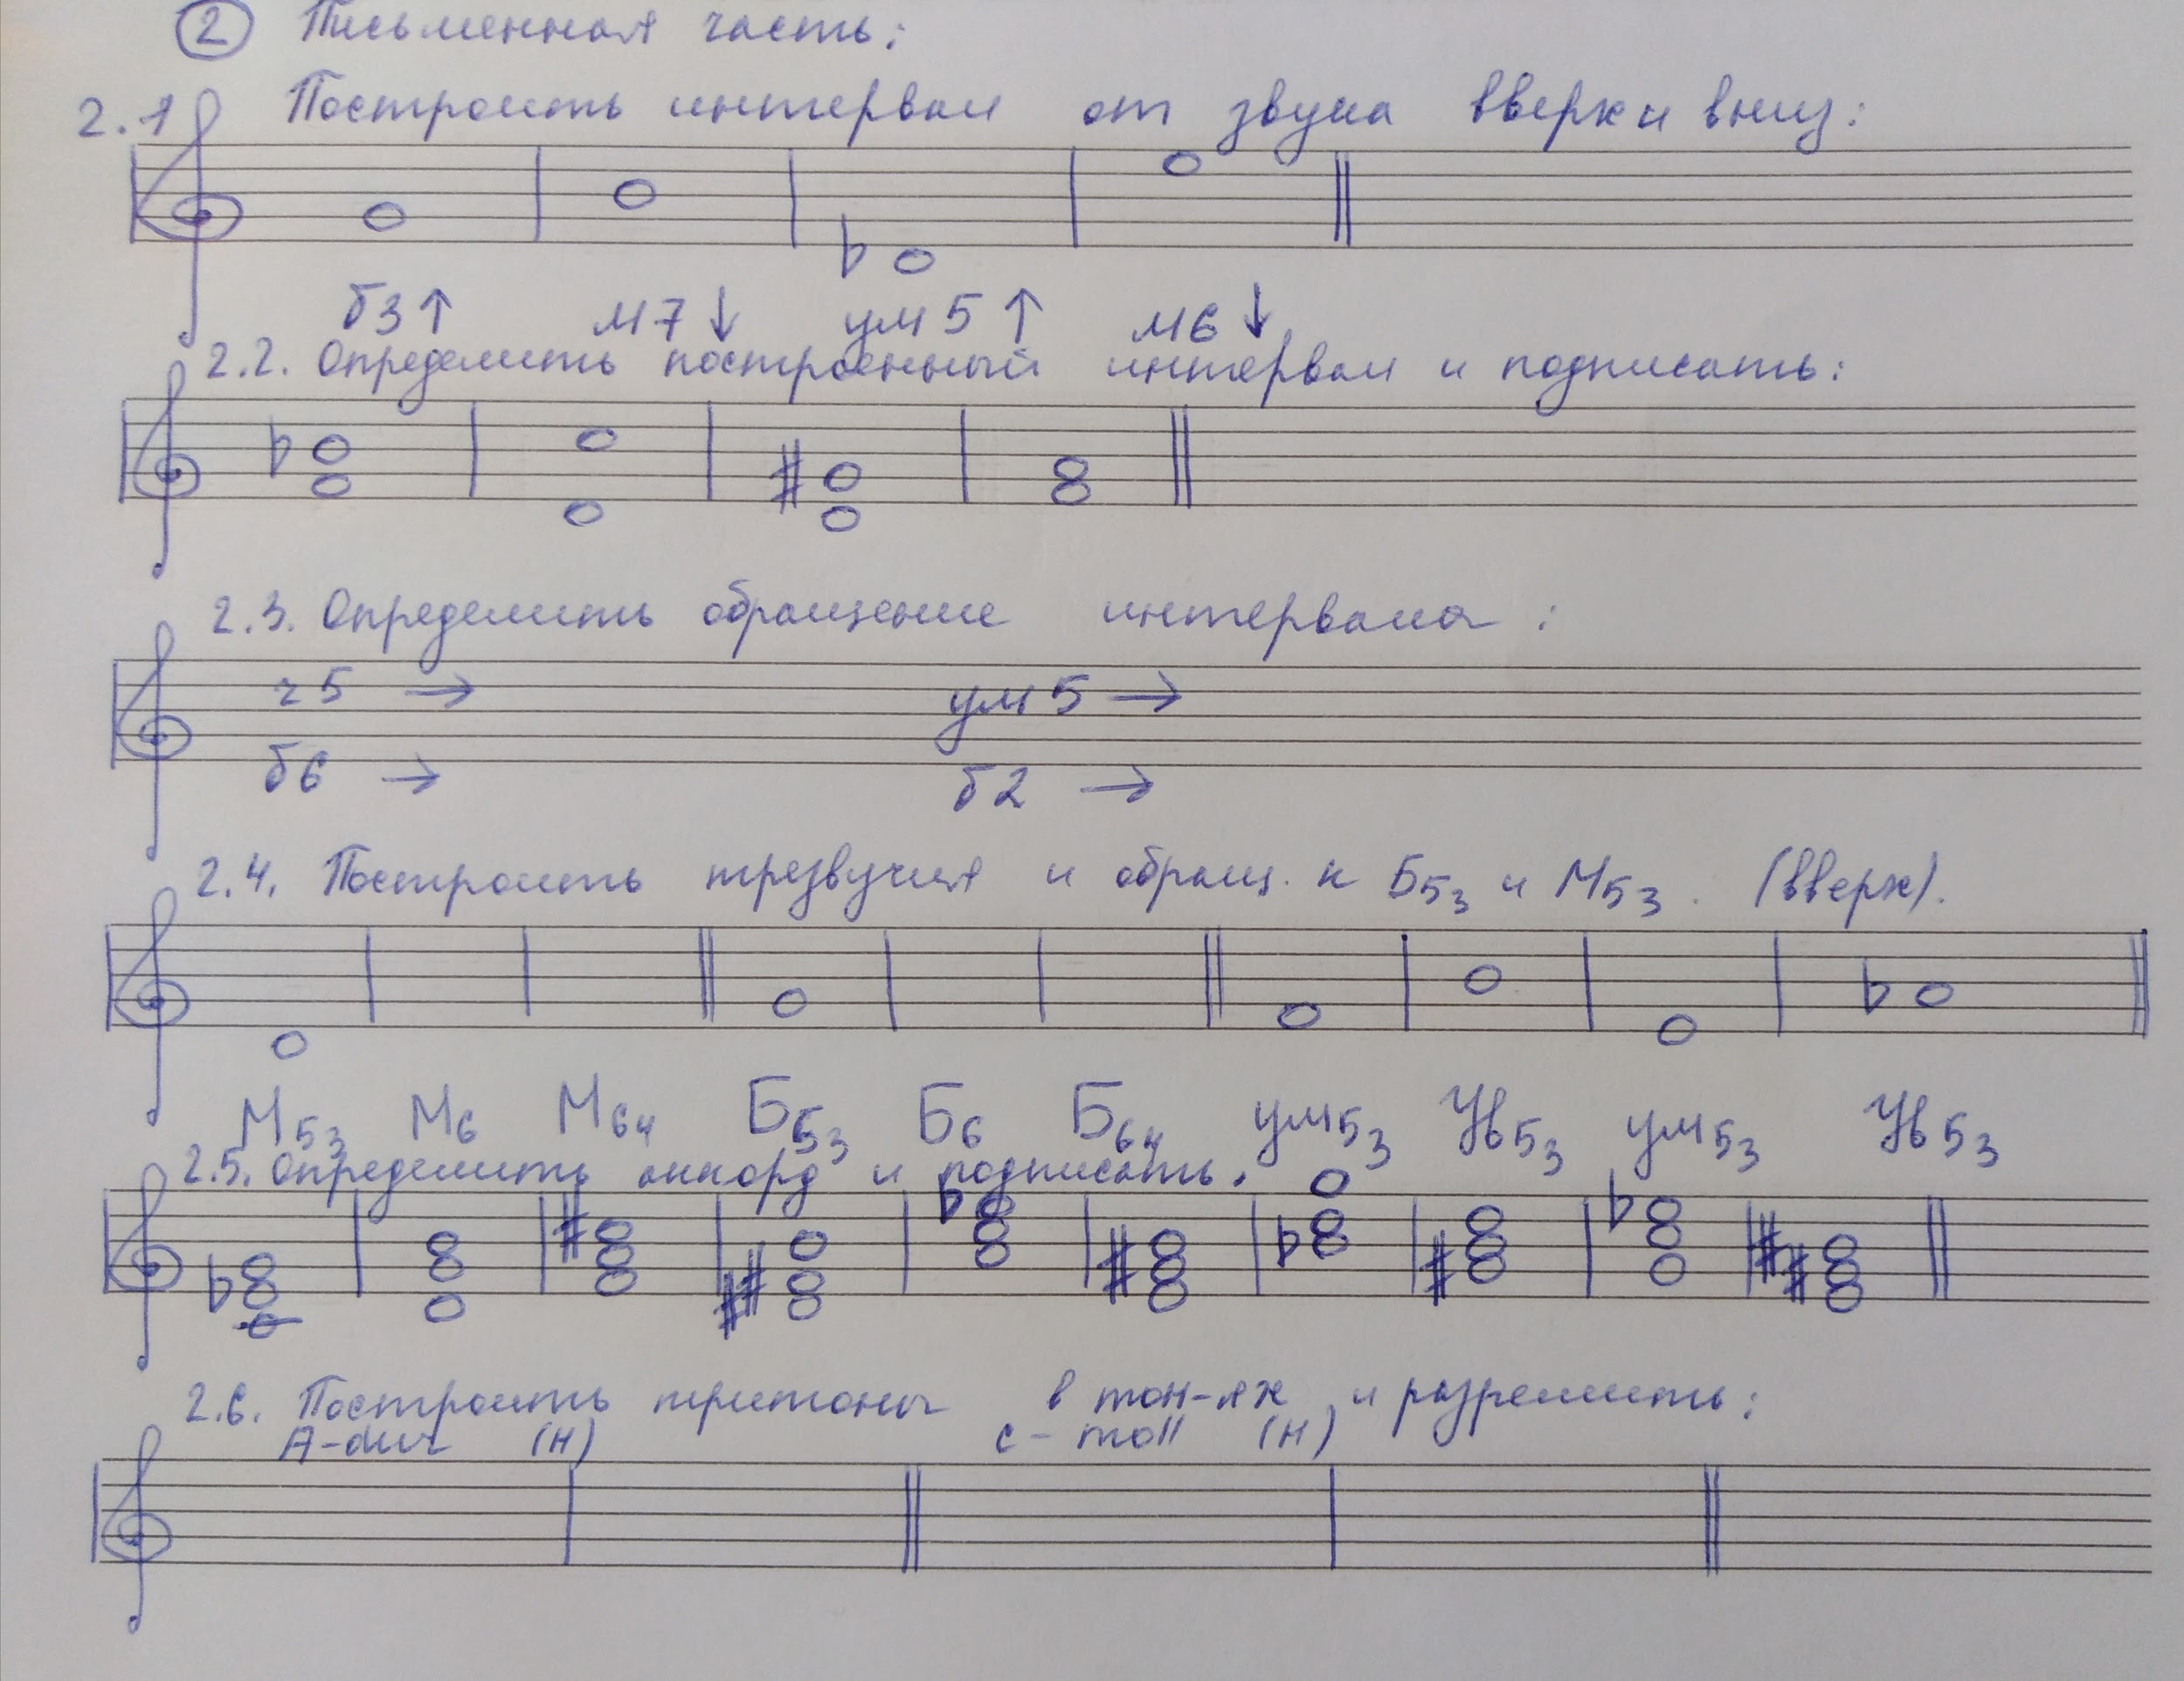 2 Письменная часть:
2.1 Построить интервал от звука вверх и вниз:
б3↑ м7↓ ум5↑ м6↓
2.2. Определить построенный интервал и подписать:
2.3. Определить обращение интервала:
ч5 → ум5 →
б6 → б2 →
2.4. Построить трезвучия и обращ. к Б53 и М53. (вверх).
М53 М6 М64 Б53 Б6 Б64 ум53 Ув53 ум53 Ув53
2.5. Определить аккорд и подписать.
2.6. Построить тритоны в тон-ях и разрешить:
A-dur (н) c-moll (н)